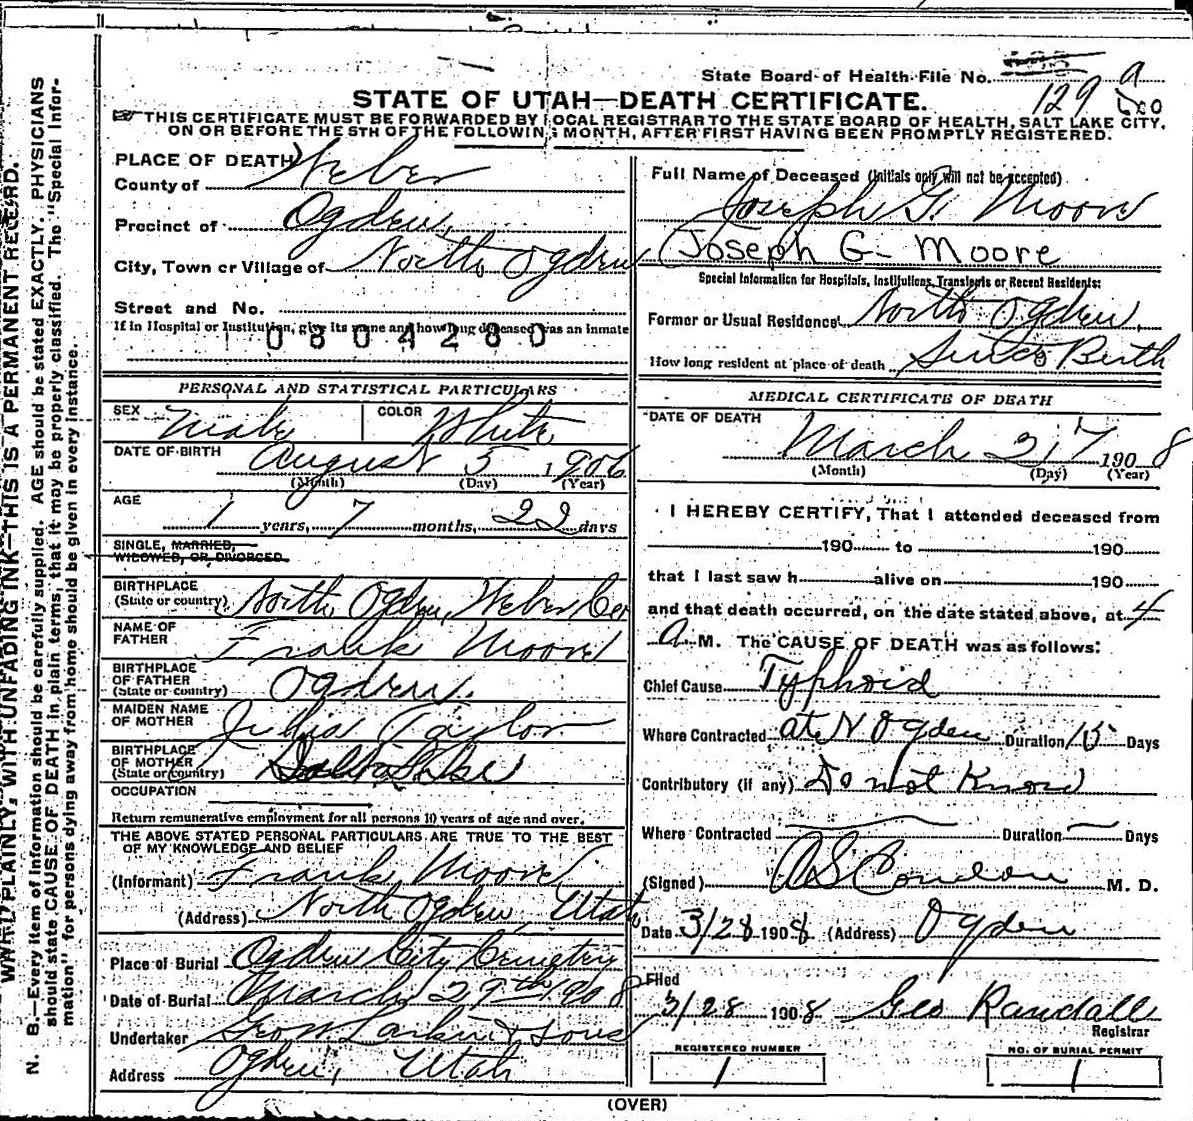 State Board of Health File No.
129 a
STATE OF UTAH—DEATH CERTIFICATE.
THIS CERTIFICATE MUST BE FORWARDED BY LOCAL REGISTRAR TO THE STATE BOARD OF HEALTH, SALT LAKE CITY,
ON OR BEFORE THE 5TH OF THE FOLLOWING MONTH, AFTER FIRST HAVING BEEN PROMPTLY REGISTERED.
PLACE OF DEATH
County of Weber
Precinct of Ogden,
City, Town or Village of North Ogden
Street and No.
If in Hospital or Institution, give its name and how long deceased was an inmate
0804280
PERSONAL AND STATISTICAL PARTICULARS
SEX Male COLOR White
DATE OF BIRTH August 5, 1906
(Month) (Day) (Year)
AGE
1 years, 7 months, 22 days
SINGLE, MARRIED,
WIDOWED, OR DIVORCED.
BIRTHPLACE
(State or country) North Ogden, Weber Co
NAME OF
FATHER Frank Moore
BIRTHPLACE
OF FATHER
(State or country) Ogden.
MAIDEN NAME
OF MOTHER Julia Taylor
BIRTHPLACE
OF MOTHER
(State or country) Salt Lake
OCCUPATION
Return remunerative employment for all persons 10 years of age and over.
THE ABOVE STATED PERSONAL PARTICULARS ARE TRUE TO THE BEST
OF MY KNOWLEDGE AND BELIEF
(Informant) Frank Moore
(Address) North Ogden, Utah
Place of Burial Ogden City Cemetery
Date of Burial March 29th 1908
Undertaker Geo W Larkin & Sons
Address Ogden, Utah
Full Name of Deceased (Initials only will not be accepted)
Joseph G. Moore
Joseph G- Moore
Special Information for Hospitals, Institutions, Transients or Recent Residents:
Former or Usual Residence North Ogden,
How long resident at place of death Since Birth
MEDICAL CERTIFICATE OF DEATH
DATE OF DEATH
March 27 1908
(Month) (Day) (Year)
I HEREBY CERTIFY, That I attended deceased from
190 to 190
that I last saw h alive on 190
and that death occurred, on the date stated above, at 4
A M. The CAUSE OF DEATH was as follows:
Chief Cause Typhoid
Where Contracted at N Ogden Duration 15 Days
Contributory (if any) Do not Know
Where Contracted Duration Days
(Signed) A S Condon M. D.
Date 3/28 1908 (Address) Ogden
Filed
3/28 1908 Geo Randall
Registrar
REGISTERED NUMBER
1
NO. OF BURIAL PERMIT
1
(OVER)
WRITE PLAINLY, WITH UNFADING INK—THIS IS A PERMANENT RECORD.
N. B.—Every item of information should be carefully supplied. AGE should be stated EXACTLY. PHYSICIANS
should state CAUSE OF DEATH in plain terms, that it may be properly classified. The "Special Infor-
mation" for persons dying away from home should be given in every instance.